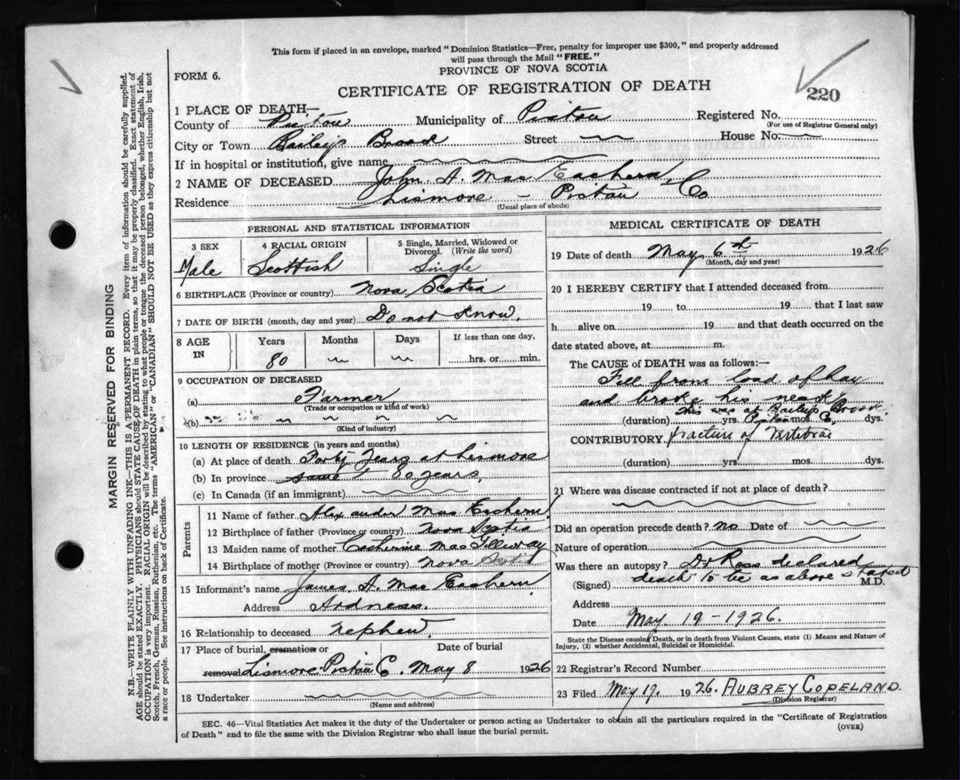 This form if placed in an envelope, marked "Dominion Statistics—Free, penalty for improper use $300," and properly addressed
will pass through the Mail "FREE."
PROVINCE OF NOVA SCOTIA
FORM 6.
CERTIFICATE OF REGISTRATION OF DEATH
220
1 PLACE OF DEATH—
County of Pictou Municipality of Pictou Registered No.
(For use of Registrar General only)
City or Town Baileys Brook Street House No.
If in hospital or institution, give name
2 NAME OF DECEASED John A. Mac Eachern
Residence Lismore Pictou Co
(Usual place of abode)
PERSONAL AND STATISTICAL INFORMATION
3 SEX Male
4 RACIAL ORIGIN Scottish
5 Single, Married, Widowed or Divorced. (Write the word) Single
6 BIRTHPLACE (Province or country) Nova Scotia
7 DATE OF BIRTH (month, day and year) Do not Know.
8 AGE IN Years 80 Months Days If less than one day, hrs. or min.
9 OCCUPATION OF DECEASED
(a) Farmer
(Trade or occupation or kind of work)
(b)
(Kind of industry)
10 LENGTH OF RESIDENCE (in years and months)
(a) At place of death Forty Years at Lismore
(b) In province 80 years
(c) In Canada (if an immigrant)
Parents
11 Name of father Alexander Mac Eachern
12 Birthplace of father (Province or country) Nova Scotia
13 Maiden name of mother Catherine Mac Gillivray
14 Birthplace of mother (Province or country) Nova
15 Informant's name James A. Mac Eachern
Address Ardness.
16 Relationship to deceased nephew.
17 Place of burial, cremation or Date of burial
removal Lismore Pictou Co. May 8 1926
18 Undertaker
(Name and address)
MEDICAL CERTIFICATE OF DEATH
19 Date of death May 6th 1926
(Month, day and year)
20 I HEREBY CERTIFY that I attended deceased from
19 to 19 that I last saw
h alive on 19 and that death occurred on the
date stated above, at m.
The CAUSE OF DEATH was as follows:—
Fell from load of hay
and broke his neck
This was at Baileys Brook
(duration) yrs. Pictou mos. Co. dys.
CONTRIBUTORY fracture of Vertebrae
(duration) yrs. mos. dys.
21 Where was disease contracted if not at place of death?
Did an operation precede death? no Date of
Nature of operation
Was there an autopsy? Dr Ross declared
death to be as above stated
(Signed) M.D.
Address
Date May 19-1926.
State the Disease causing Death, or in death from Violent Causes, state (1) Means and Nature of
Injury, (2) whether Accidental, Suicidal or Homicidal.
22 Registrar's Record Number
23 Filed May 19. 1926. AUBREY COPELAND.
(Division Registrar)
SEC. 46—Vital Statistics Act makes it the duty of the Undertaker or person acting as Undertaker to obtain all the particulars required in the "Certificate of Registration
of Death" and to file the same with the Division Registrar who shall issue the burial permit.
(OVER)
MARGIN RESERVED FOR BINDING
N.B.—WRITE PLAINLY WITH UNFADING INK—THIS IS A PERMANENT RECORD. Every item of information should be carefully supplied.
AGE should be stated EXACTLY. PHYSICIANS should STATE CAUSE OF DEATH in plain terms, so that it may be properly classified. Exact statement of
OCCUPATION is very important. RACIAL ORIGIN will be described by stating to what people or tongue the deceased person belonged, whether English, Irish,
Scotch, French, German, Russian, Ruthenian, etc. The terms "AMERICAN" or "CANADIAN" SHOULD NOT BE USED as they express citizenship but not
a race or people. See instructions on back of Certificate.